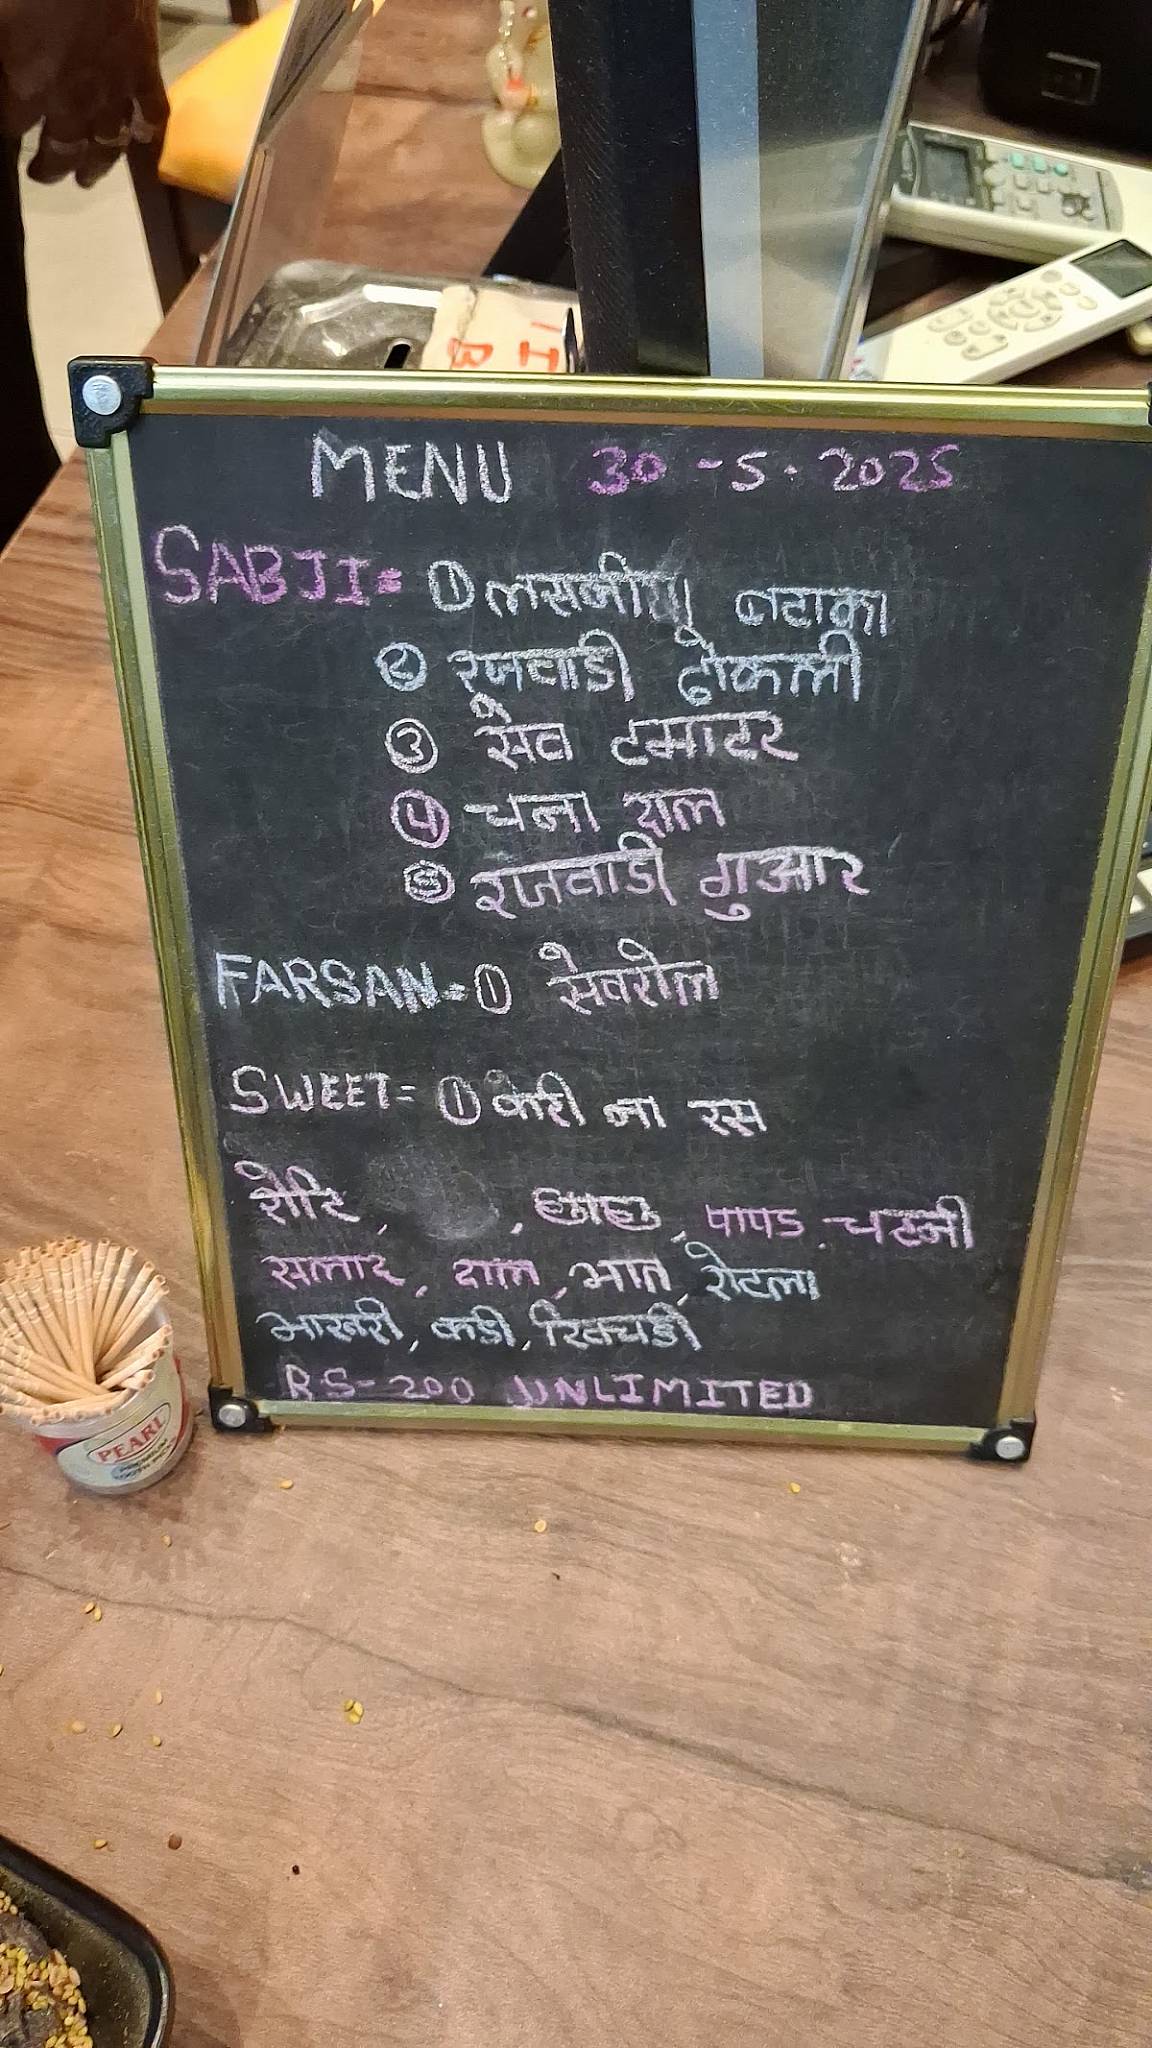 MENU 30-5.2025
SABJI= ① लसनीयू बटाका
② रजवाडी ढोकली
③ सेव टमाटर
④ चना दाल
⑤ रजवाडी गुआर
FARSAN=① सेवरोल
SWEET= ① केरी ना रस
रोटि, , छाछ, पापड, चटनी
सलाद, दाल, भात, रोटला
भाखरी, कडी, खिचडी
RS-200 UNLIMITED
PEARL
PREMIUM